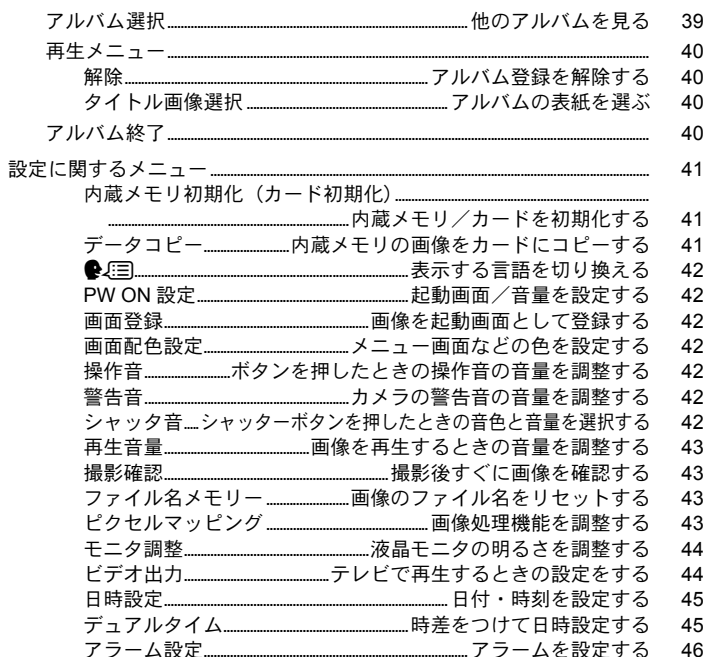 アルバム選択 他のアルバムを見る 39
再生メニュー 40
解除 アルバム登録を解除する 40
タイトル画像選択 アルバムの表紙を選ぶ 40
アルバム終了 40
設定に関するメニュー 41
内蔵メモリ初期化（カード初期化）
内蔵メモリ／カードを初期化する 41
データコピー 内蔵メモリの画像をカードにコピーする 41
表示する言語を切り換える 42
PW ON 設定 起動画面／音量を設定する 42
画面登録 画像を起動画面として登録する 42
画面配色設定 メニュー画面などの色を設定する 42
操作音 ボタンを押したときの操作音の音量を調整する 42
警告音 カメラの警告音の音量を調整する 42
シャッタ音 シャッターボタンを押したときの音色と音量を選択する 42
再生音量 画像を再生するときの音量を調整する 43
撮影確認 撮影後すぐに画像を確認する 43
ファイル名メモリー 画像のファイル名をリセットする 43
ピクセルマッピング 画像処理機能を調整する 43
モニタ調整 液晶モニタの明るさを調整する 44
ビデオ出力 テレビで再生するときの設定をする 44
日時設定 日付・時刻を設定する 45
デュアルタイム 時差をつけて日時設定する 45
アラーム設定 アラームを設定する 46